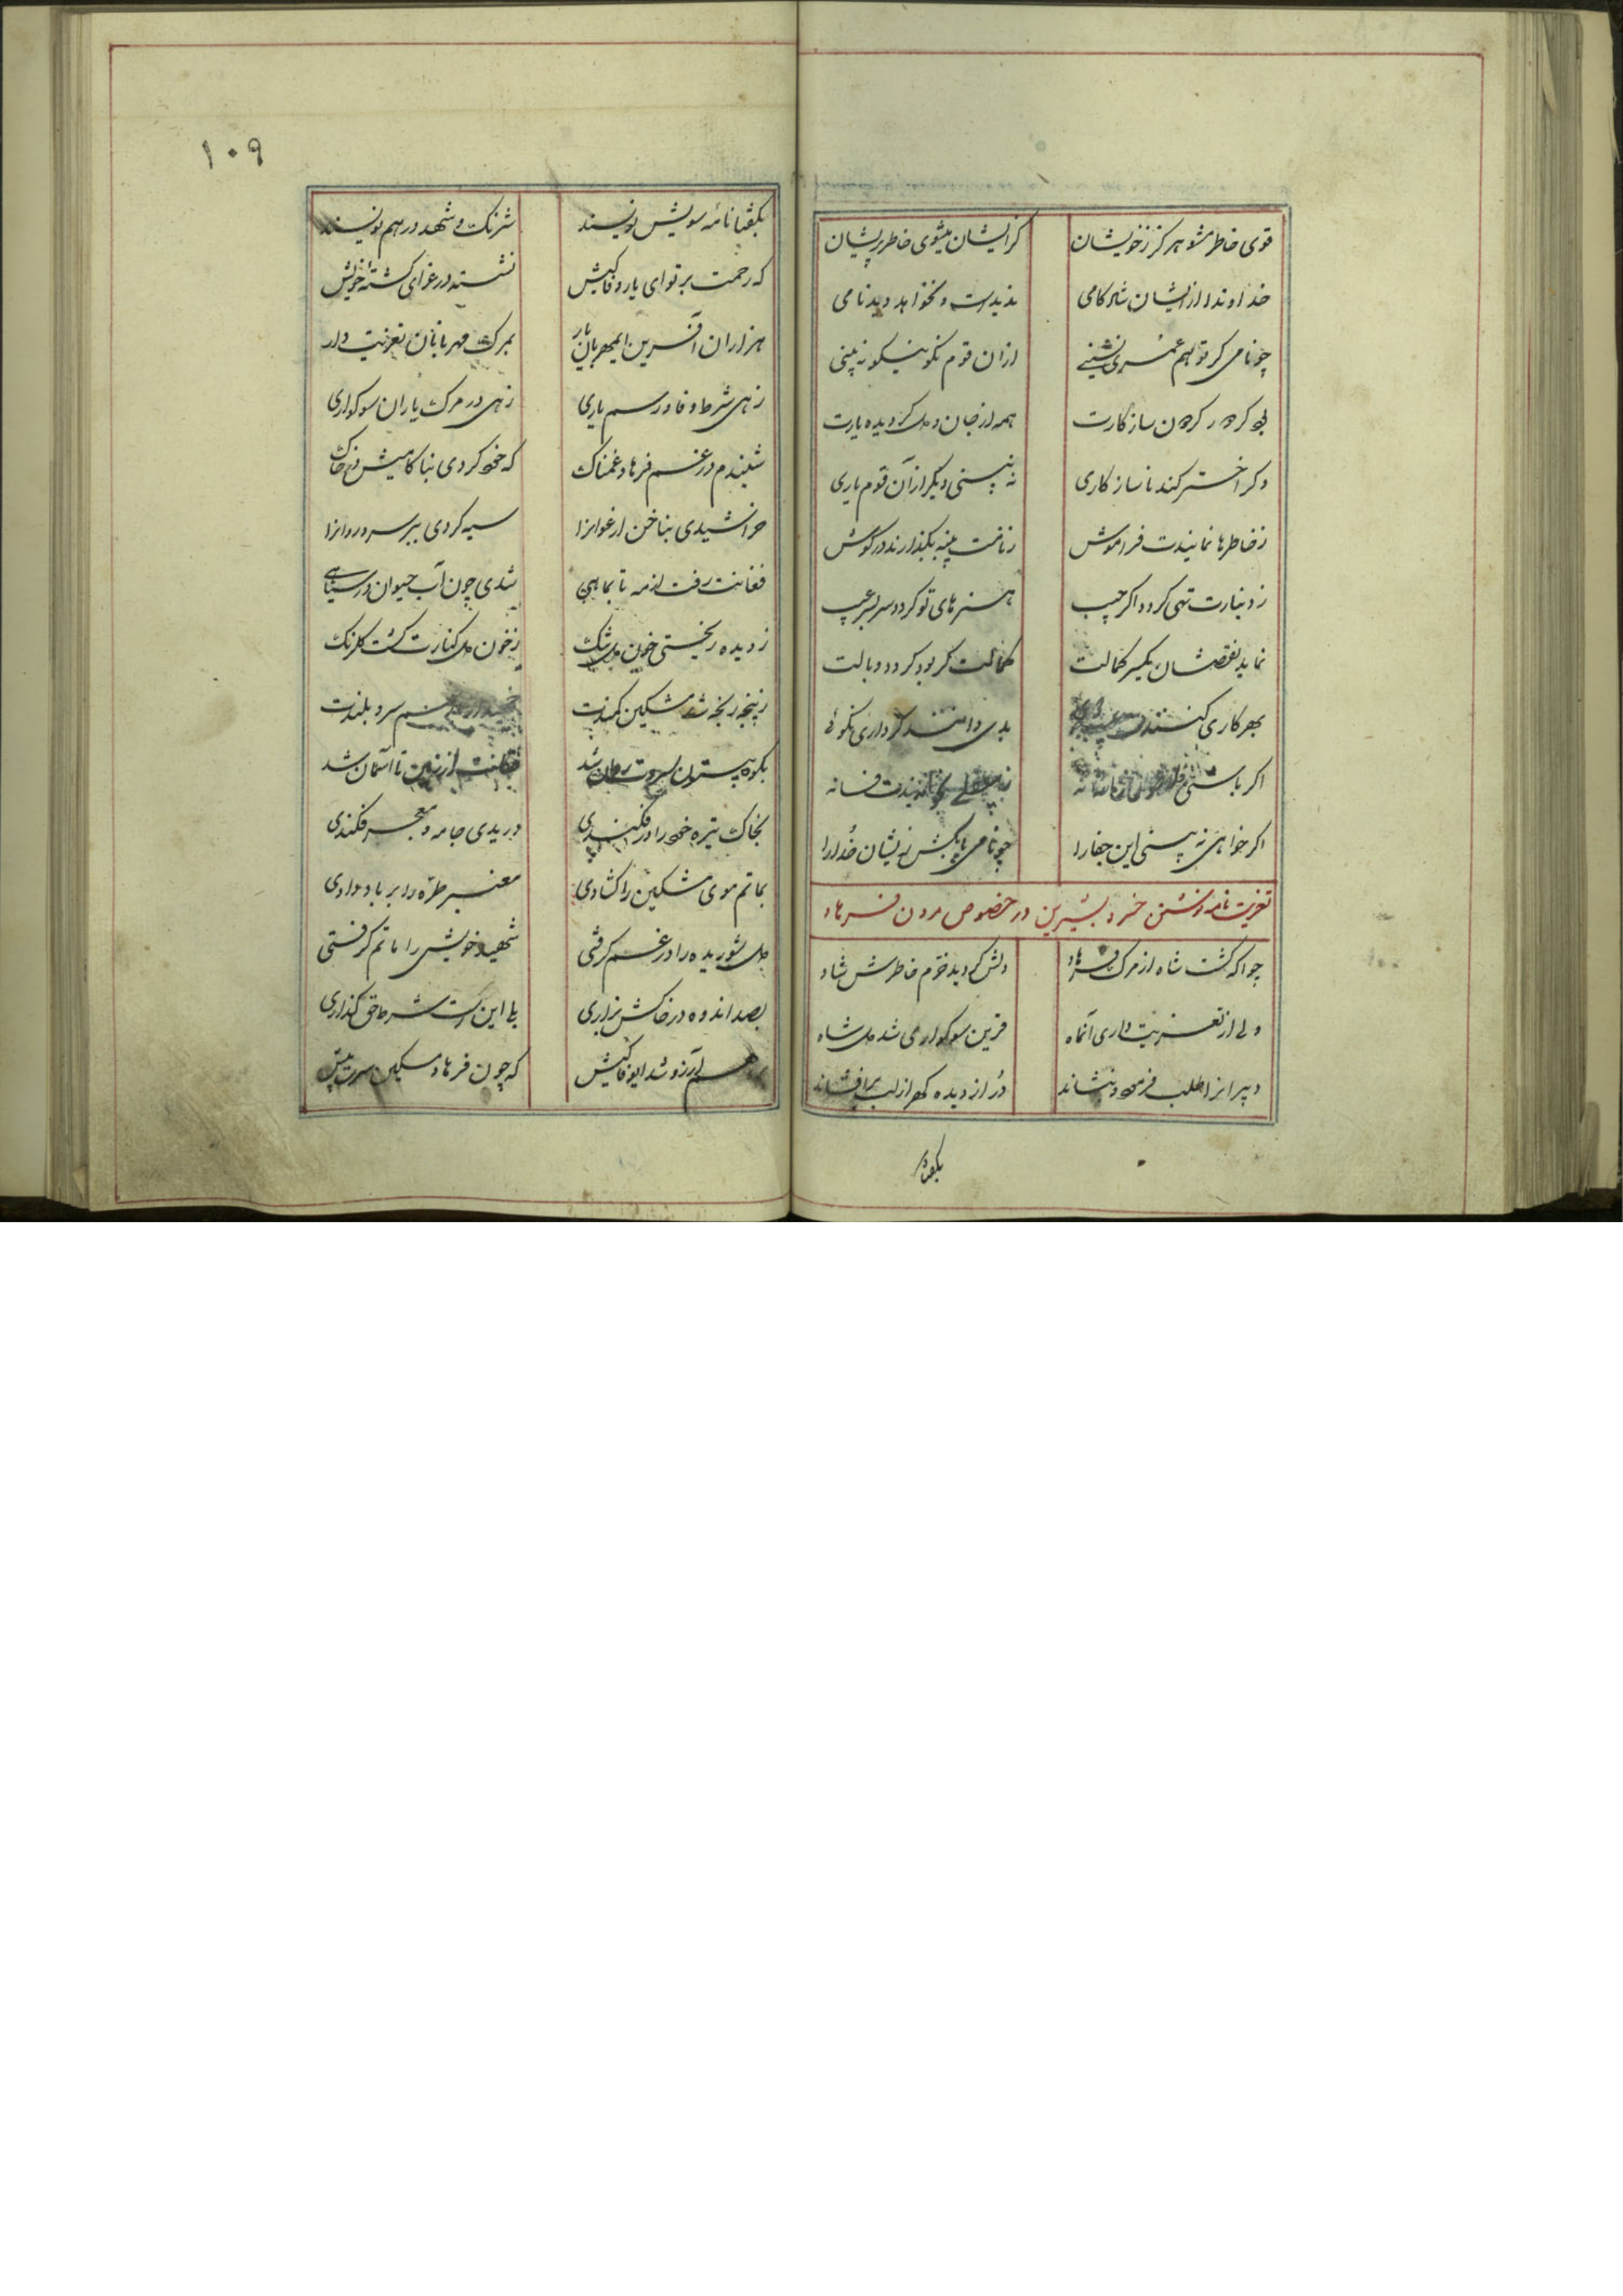 قوی خاطر مشو هرگز ز خویشان
کز ایشان میشوی خاطر پریشان
خداوندا از ایشان شادکامی
ندیدست و نخواهد دید نامی
چو نامی گر تو هم عمری نشینی
ازان قوم نکو نیکو نبینی
بود گر دور گردون سازکارت
همه از جان و دل گردیده یارت
وگر اختر کند ناسازکاری
نه بینی دیگر از آن قوم یاری
ز خاطرها نمایندت فراموش
ز نامت پنبه بگذارند در گوش
ز دینارت تهی گردد اگر جیب
هنرهای تو گردد سر بسر عیب
نماید نقصشان یکسر کمالت
کمالت گر بود گردد وبالت
بهر کاری کنندت
بدی دانند گر داری نکوئی
اگر باشی
فسانه
اگر خواهی نه بینی این جفا را
چو نامی پا بکش زیشان خدا را
تعزیت نامه نوشتن خسرو بشیرین در خصوص مردن فرهاد
چو اگه گشت شاه از مرگ فرهاد
دلش گردید خرم خاطرش شاد
ولی از تعزیت داری آنماه
قرین سوکواری شد دل شاه
دبیرانرا طلب فرمود و بنشاند
در از دیده گهر از لب برافشاند
بگفتا
۱۰۹
بگفتا نامه سویش نویسند
شرنگ و شهد در هم نویسند
که رحمت بر تو ای یار وفاکیش
نشسته در عزای کشته خویش
هزاران آفرین ای مهربان یار
بمرگ مهربانان تعزیت دار
زهی شرط وفا و رسم یاری
زهی در مرگ یاران سوکواری
شنیدم در غم فرهاد غمناک
که خود کردی بناکامیش در خاک
خراشیدی بناخن ارغوانرا
سیه کردی ببر سرو روانرا
فغانت رفت از مه تا بماهی
شدی چون آب حیوان در سیاهی
ز دیده ریختی خون دل تنگ
ز خون دل کنارت گشت گلرنگ
ز پنجه رنجه شد مشکین کمندت
سرو بلندت
بکوه بیستون سروت روان شد
فغانت از زمین تا آسمان شد
بخاک تیره خود را در فکندی
دریدی جامه و معجر فکندی
بماتم موی مشکین را گشادی
معنبر طره را بر باد دادی
دل شوریده را در غم گرفتی
شهید خویش را ماتم گرفتی
بصد اندوه در خاکش بزاری
بلی این است شرط حق گذاری
آرزو شد ای وفاکیش
که چون فرهاد مسکین